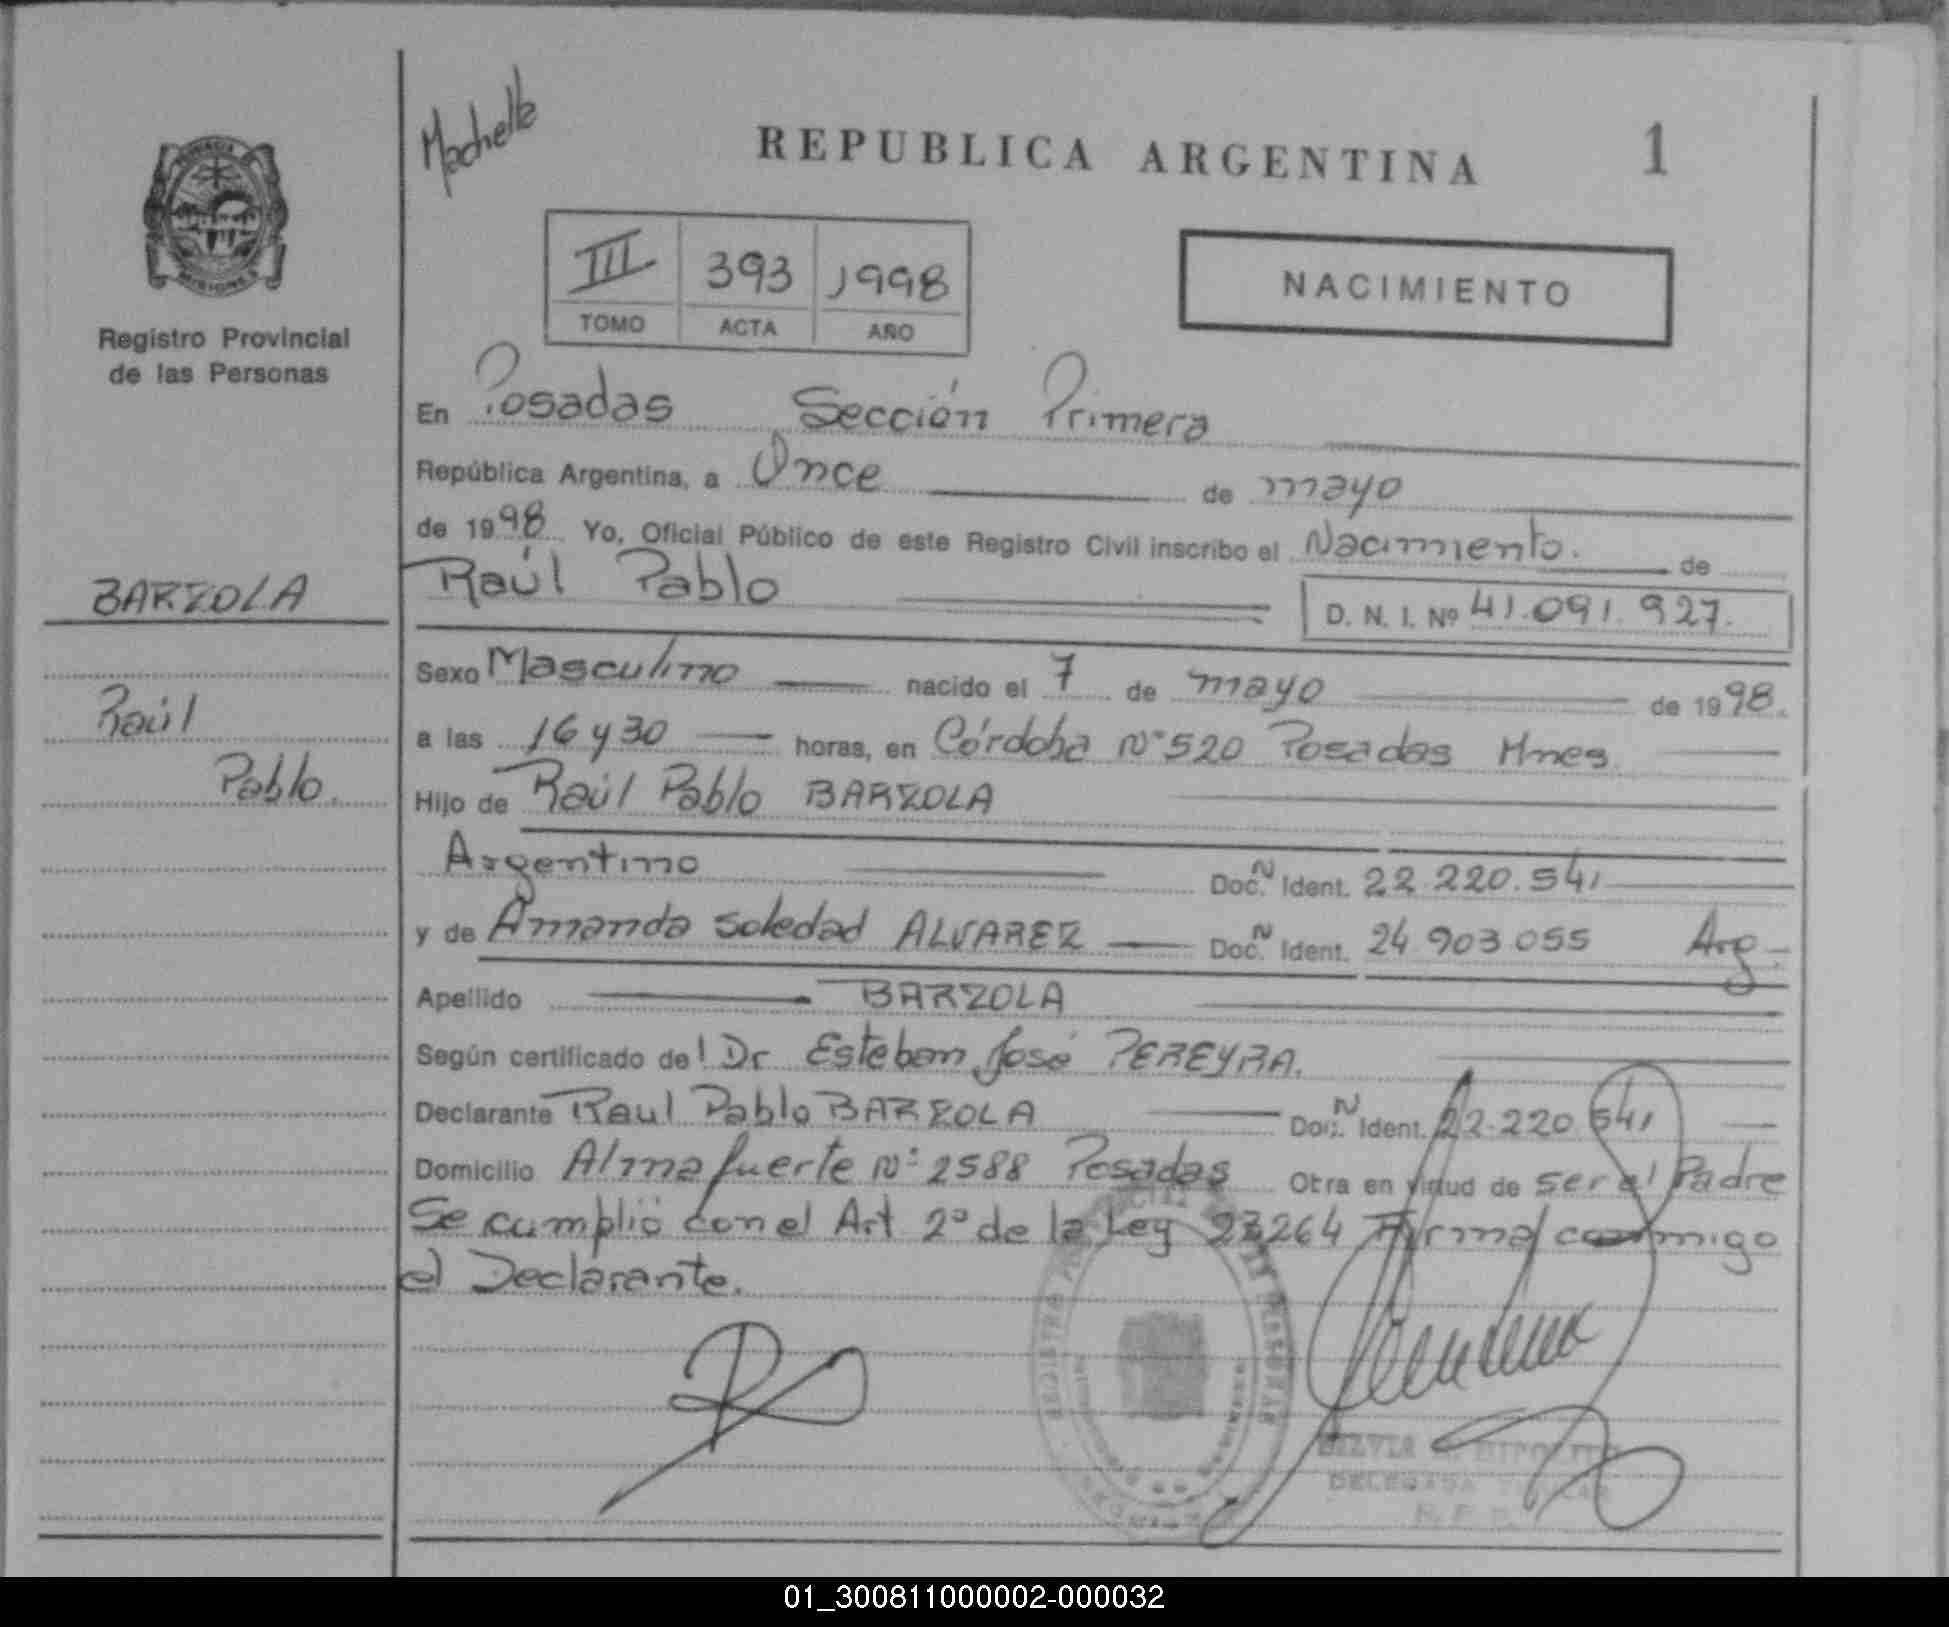 Machelle
REPUBLICA ARGENTINA 1
PROVINCIA DE MISIONES
Registro Provincial
de las Personas
III 393 1998
TOMO ACTA AÑO
NACIMIENTO
En Posadas Sección Primera
República Argentina, a Once de mayo
de 1998 Yo, Oficial Público de este Registro Civil inscribo el Nacimiento. de
BARZOLA
Raúl Pablo D. N. I. Nº 41.091.927.
Sexo Masculino nacido el 7 de mayo de 1998.
Raúl
a las 16 y 30 horas, en Córdoba Nº 520 Posadas Mnes
Pablo.
Hijo de Raúl Pablo BARZOLA
Argentino Doc. N Ident. 22.220.541
y de Amanda Soledad ALVAREZ Doc. N Ident. 24 903 055 Arg.
Apellido BARZOLA
Según certificado del Dr Esteban José PEREYRA.
Declarante Raul Pablo BARZOLA Doc. N Ident. 22.220.541
Domicilio Almafuerte Nº 2588 Posadas Otra en virtud de ser el Padre
Se cumplió con el Art 2º de la Ley 23264 Firma conmigo
el Declarante.
REGISTRO PERSONAS
DELEGADA TITULAR
R. P. P.
01_300811000002-000032